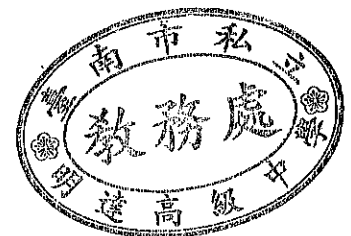 臺南市私立
明達高級中學
教務處